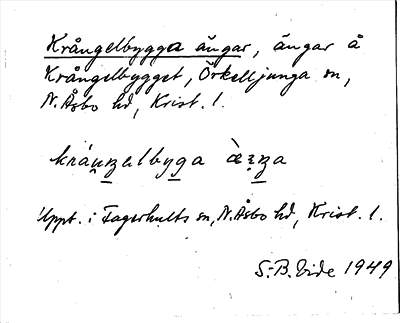 Krångelbygga ängar, ängar å
Krångelbygget, Örkelljunga sn,
N. Åsbo hd, Krist. l.
Uppt. i Fagerhults sn, N. Åsbo hd, Krist. l.
S.-B. Vide 1949